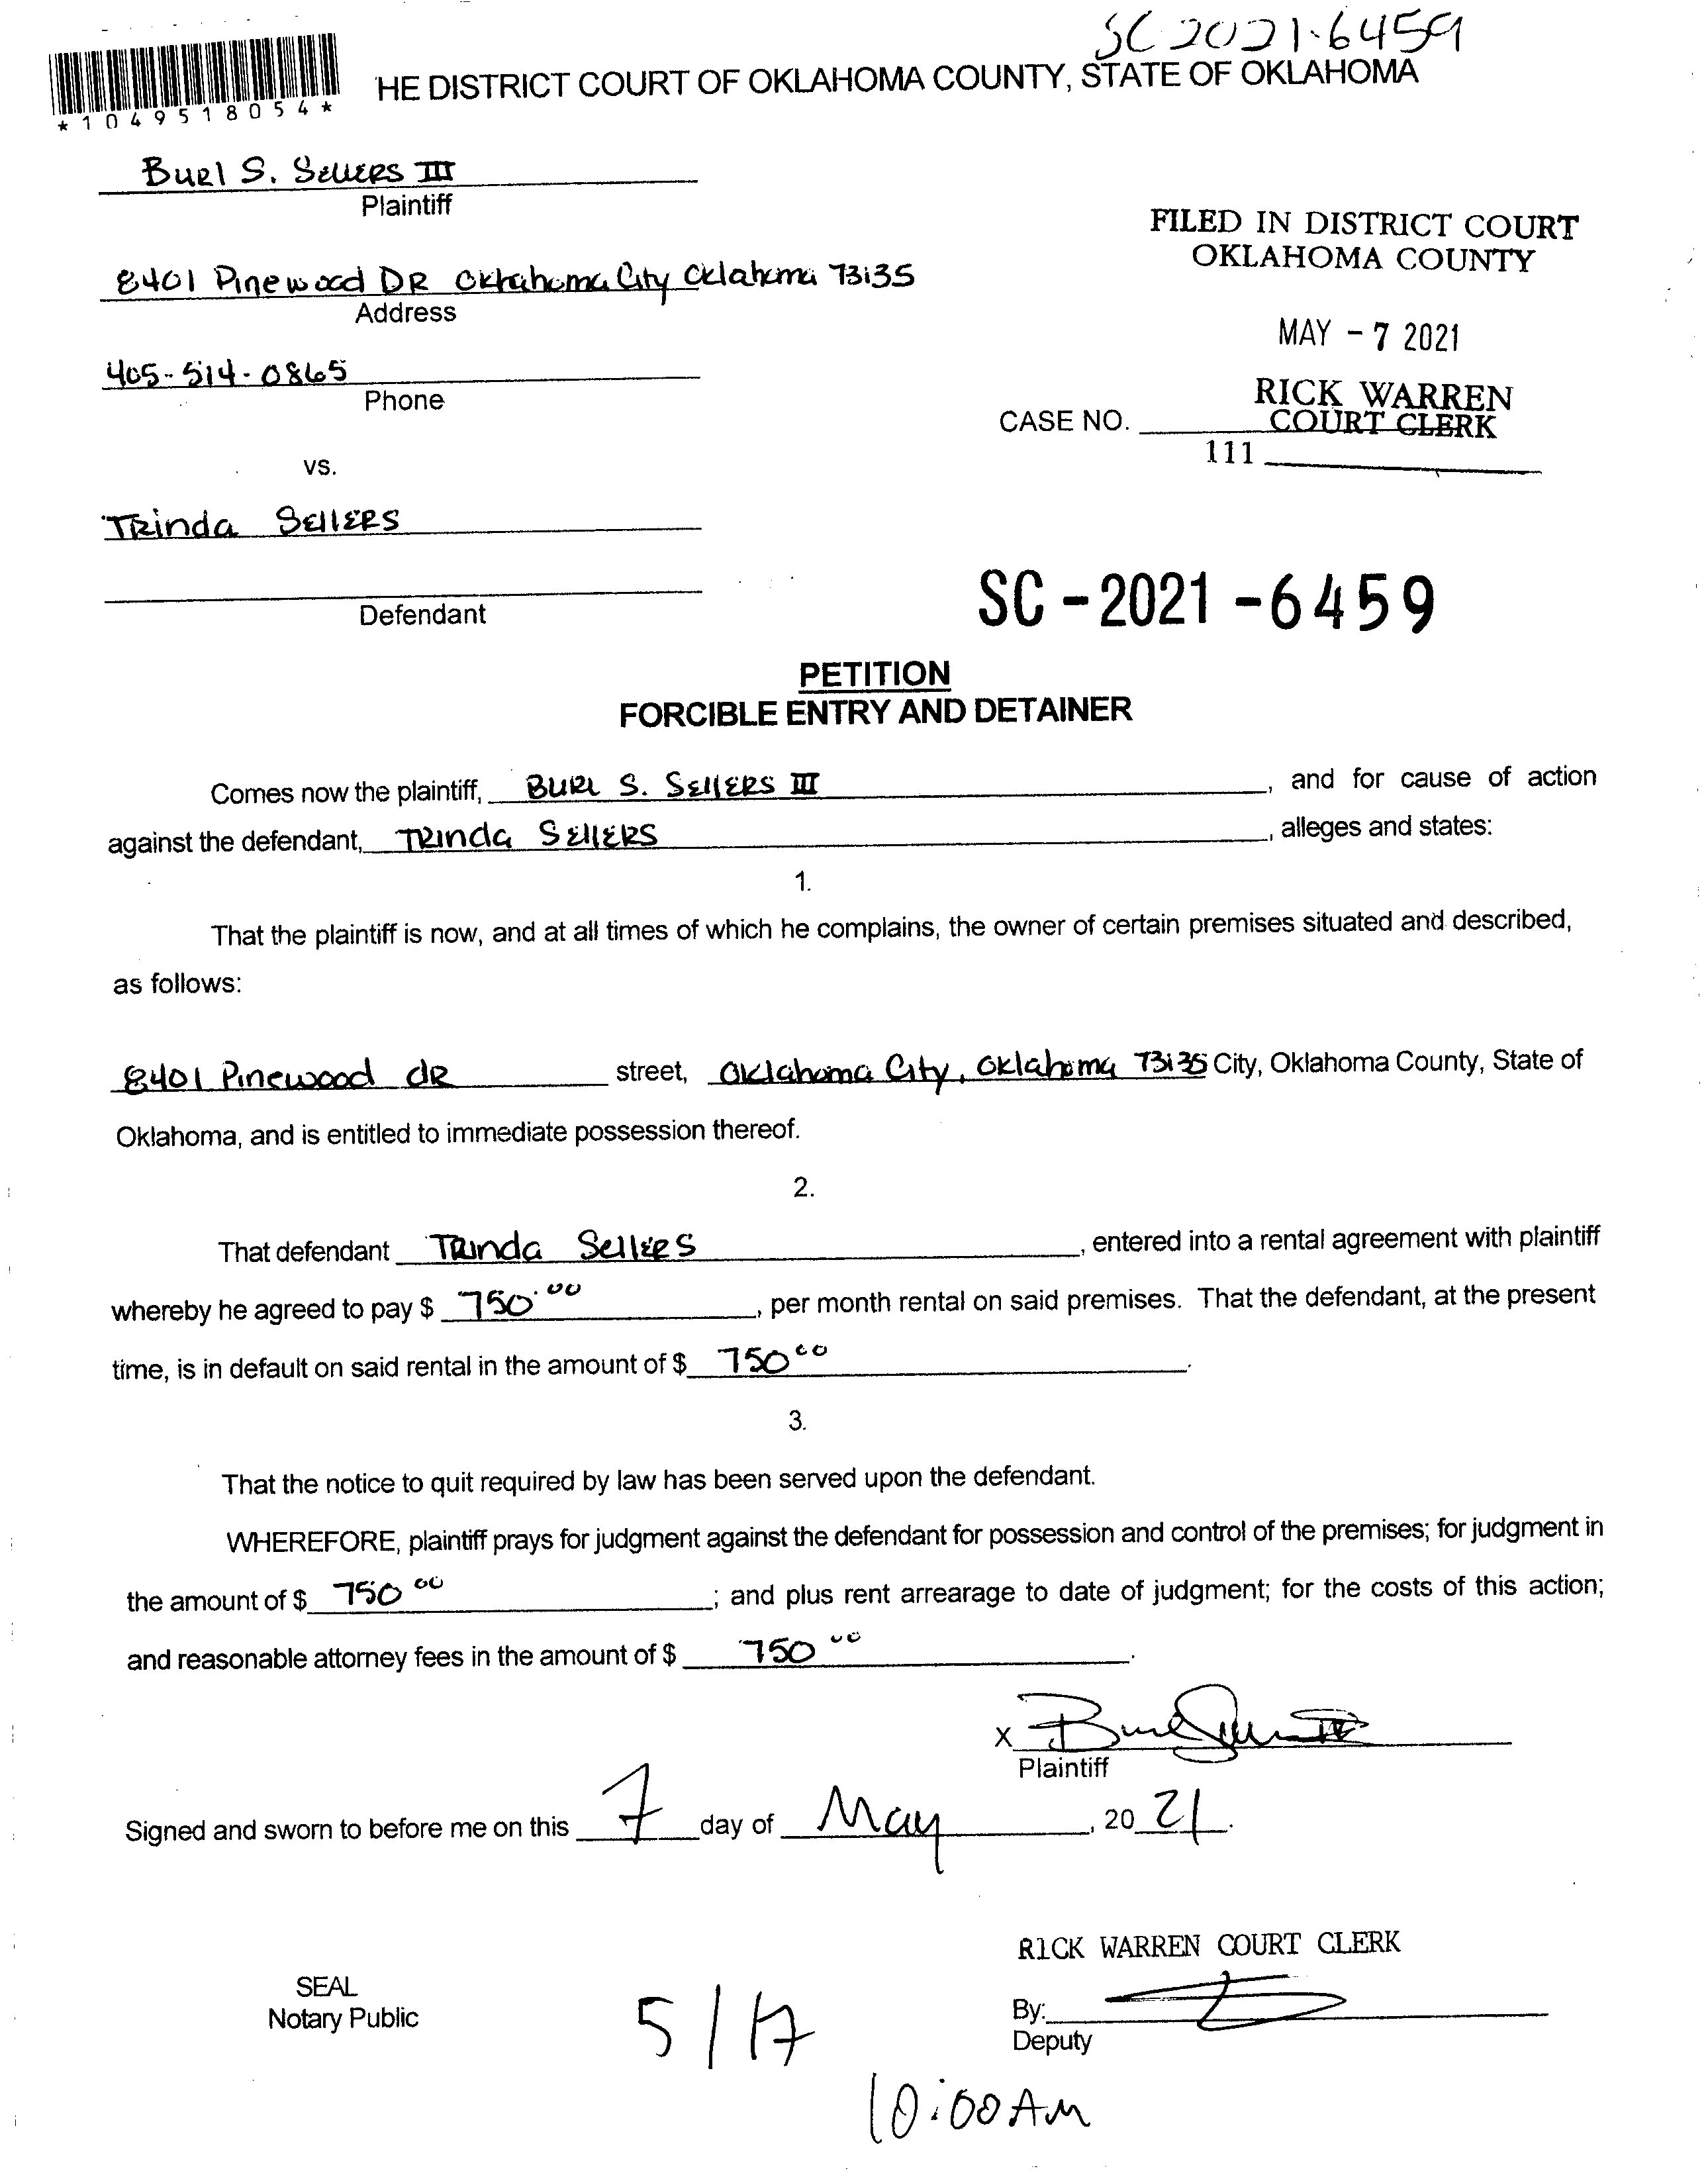 SC 2021-6459
HE DISTRICT COURT OF OKLAHOMA COUNTY, STATE OF OKLAHOMA
*1049518054*
Burl S. Sellers III
Plaintiff
FILED IN DISTRICT COURT
OKLAHOMA COUNTY
8401 Pinewood DR Oklahoma City Oklahoma 73135
Address
MAY - 7 2021
405-514-0865
Phone
RICK WARREN
COURT CLERK
CASE NO.
111
vs.
Trinda Sellers
Defendant
SC - 2021 - 6459
PETITION
FORCIBLE ENTRY AND DETAINER
Comes now the plaintiff, Burl S. Sellers III, and for cause of action
against the defendant, Trinda Sellers, alleges and states:
1.
That the plaintiff is now, and at all times of which he complains, the owner of certain premises situated and described,
as follows:
8401 Pinewood dR street, Oklahoma City, Oklahoma 73135 City, Oklahoma County, State of
Oklahoma, and is entitled to immediate possession thereof.
2.
That defendant Trinda Sellers, entered into a rental agreement with plaintiff
whereby he agreed to pay $ 750.00, per month rental on said premises. That the defendant, at the present
time, is in default on said rental in the amount of $ 750 00.
3.
That the notice to quit required by law has been served upon the defendant.
WHEREFORE, plaintiff prays for judgment against the defendant for possession and control of the premises; for judgment in
the amount of $ 750 00; and plus rent arrearage to date of judgment; for the costs of this action;
and reasonable attorney fees in the amount of $ 750 00.
X
Plaintiff
Signed and sworn to before me on this 7 day of May, 20 21.
RICK WARREN COURT CLERK
SEAL
Notary Public
By:
Deputy
5/17
10:00 AM